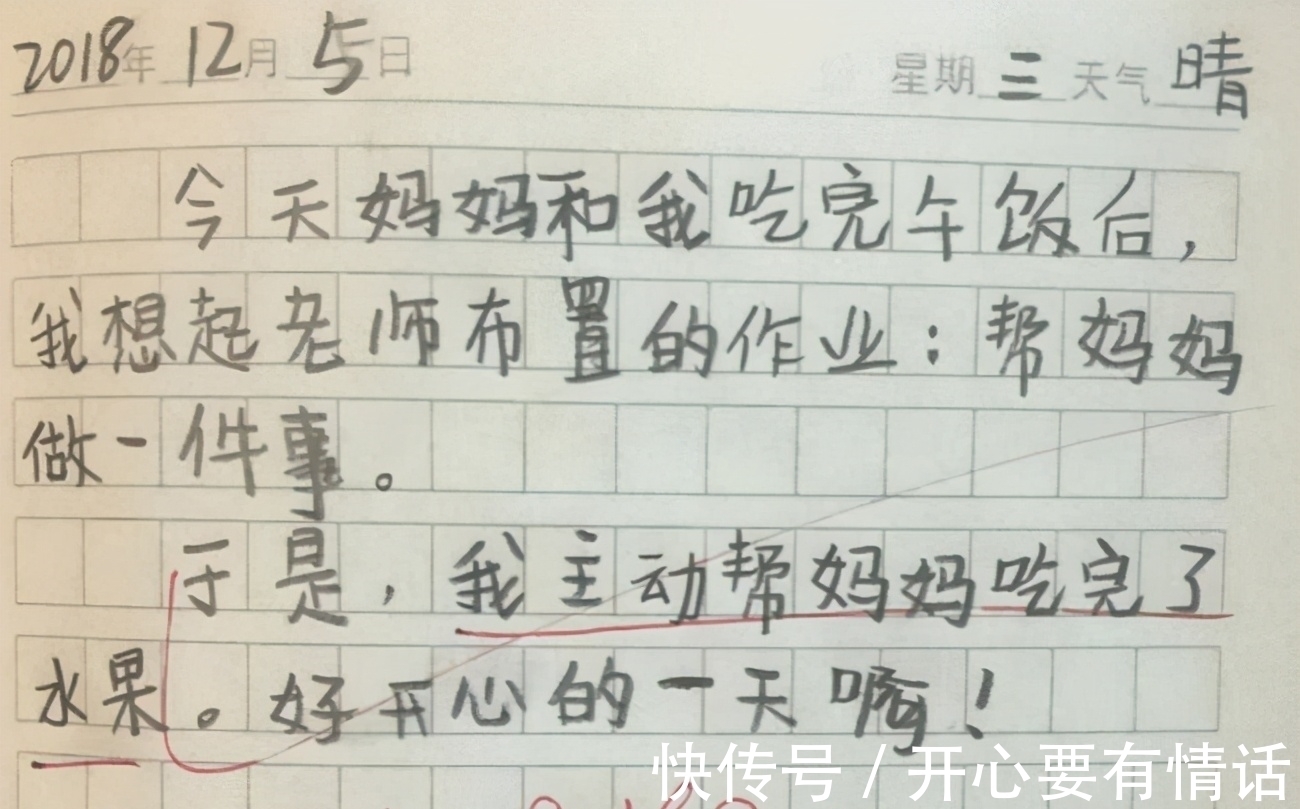 2018年 12月 5日 星期三 天气 晴
今天妈妈和我吃完午饭后，
我想起老师布置的作业：帮妈妈
做一件事。
于是，我主动帮妈妈吃完了
水果。好开心的一天啊！
快传号 / 开心要有情话